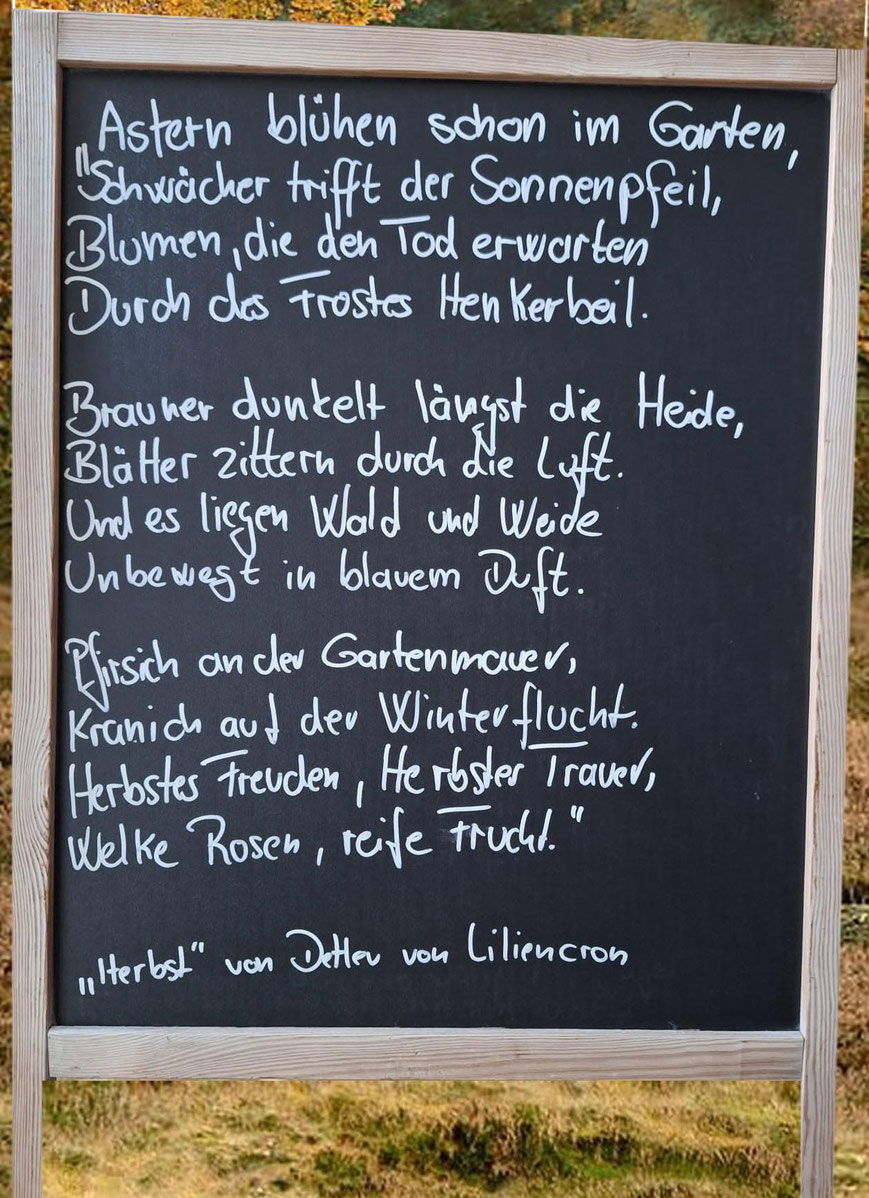 Astern blühen schon im Garten,
"Schwächer trifft der Sonnenpfeil,
Blumen, die den Tod erwarten
Durch des Frostes Henkerbeil.
Brauner dunkelt längst die Heide,
Blätter zittern durch die Luft.
Und es liegen Wald und Weide
Unbewegt in blauem Duft.
Pfirsich an der Gartenmauer,
Kranich auf der Winterflucht.
Herbstes Freuden, Herbstes Trauer,
Welke Rosen, reife Frucht."
„Herbst" von Detlev von Liliencron